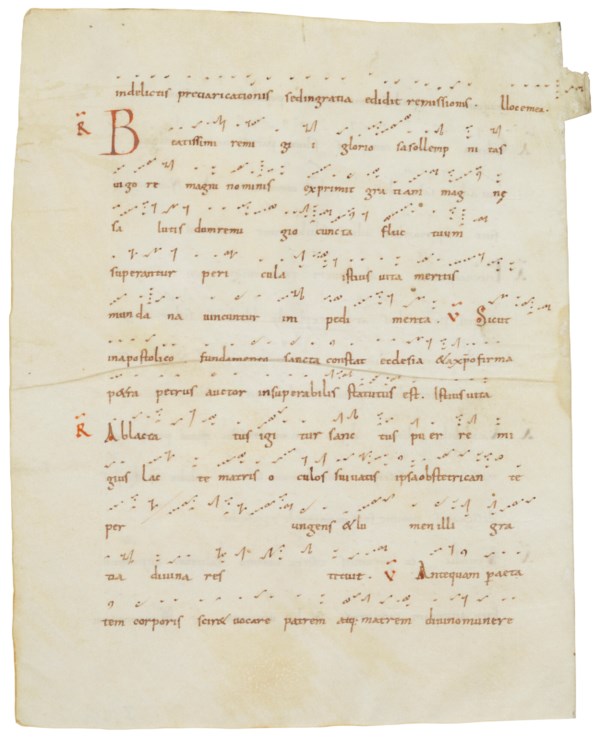 indelictis prevaricationis sedingratia edidit remissionis. Illocemea.
R Beatissimi remi gi i glorio sasollemp ni tas
vigo re magni nominis exprimit gra tiam mag nę
sa lutis dumremi gio cuncta flale tium
superantur peri cula istius vita meritis
munda na vincuntur in pedi menta. V Sicut
inapostolico fundamento sancta constat ecclesia &axpofirma
p&ra petrus auctor insuperabilis statutus est. Istiusvita
R Ablacta tus igi tur sanc tus puer re mi
gius lac te matris o culos suivatis ipsaobstetrican te
per ungens &lu menilli gra
tia divina res tituit. V Antequam pacta
tem corporis scir& vocare patrem atq; matrem divinomunere